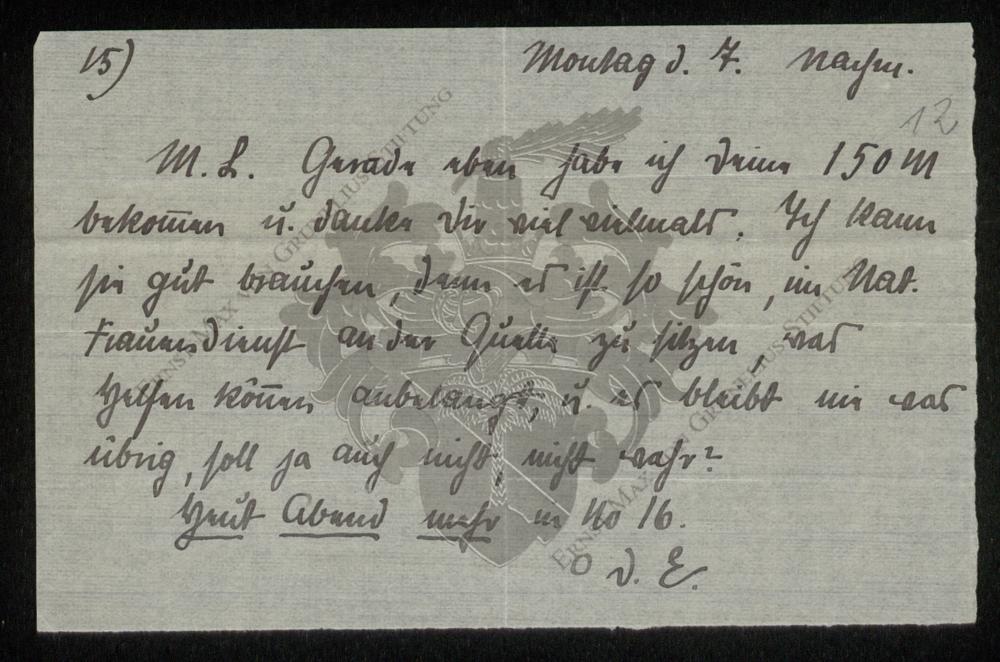 15)
Montag d. 7. Nachm.
12
M. L. Gerade eben habe ich Deine 150 M
bekom̅en u. danke Dir viel vielmals. Ich kann
sie gut brauchen, denn es ist so schön, im Nat.
Frauendienst an der Quelle zu sitzen, was
Helfen kön̅en anbelangt, u. es bleibt nie was
übrig, soll ja auch nicht, nicht wahr?
Heut Abend mehr in No 16.
D. E.
ERNST MAX VON GRUNELIUS STIFTUNG
ERNST MAX VON GRUNELIUS STIFTUNG